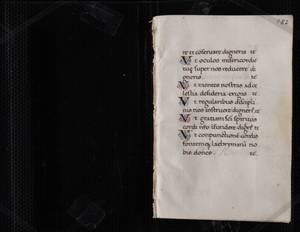 re et conservare digneris te
Ut oculos misericordie
tue super nos reducere di
gneris te
Ut mentes nostras ad ce
lestia desideria erigas te
Ut regularibus discipli
nis nos instruere digneris te
Ut gratiam sci spiritus
cordi nro infundere digneris te
Ut compunctione cordis
fontemq lacrymarum no
bis dones te